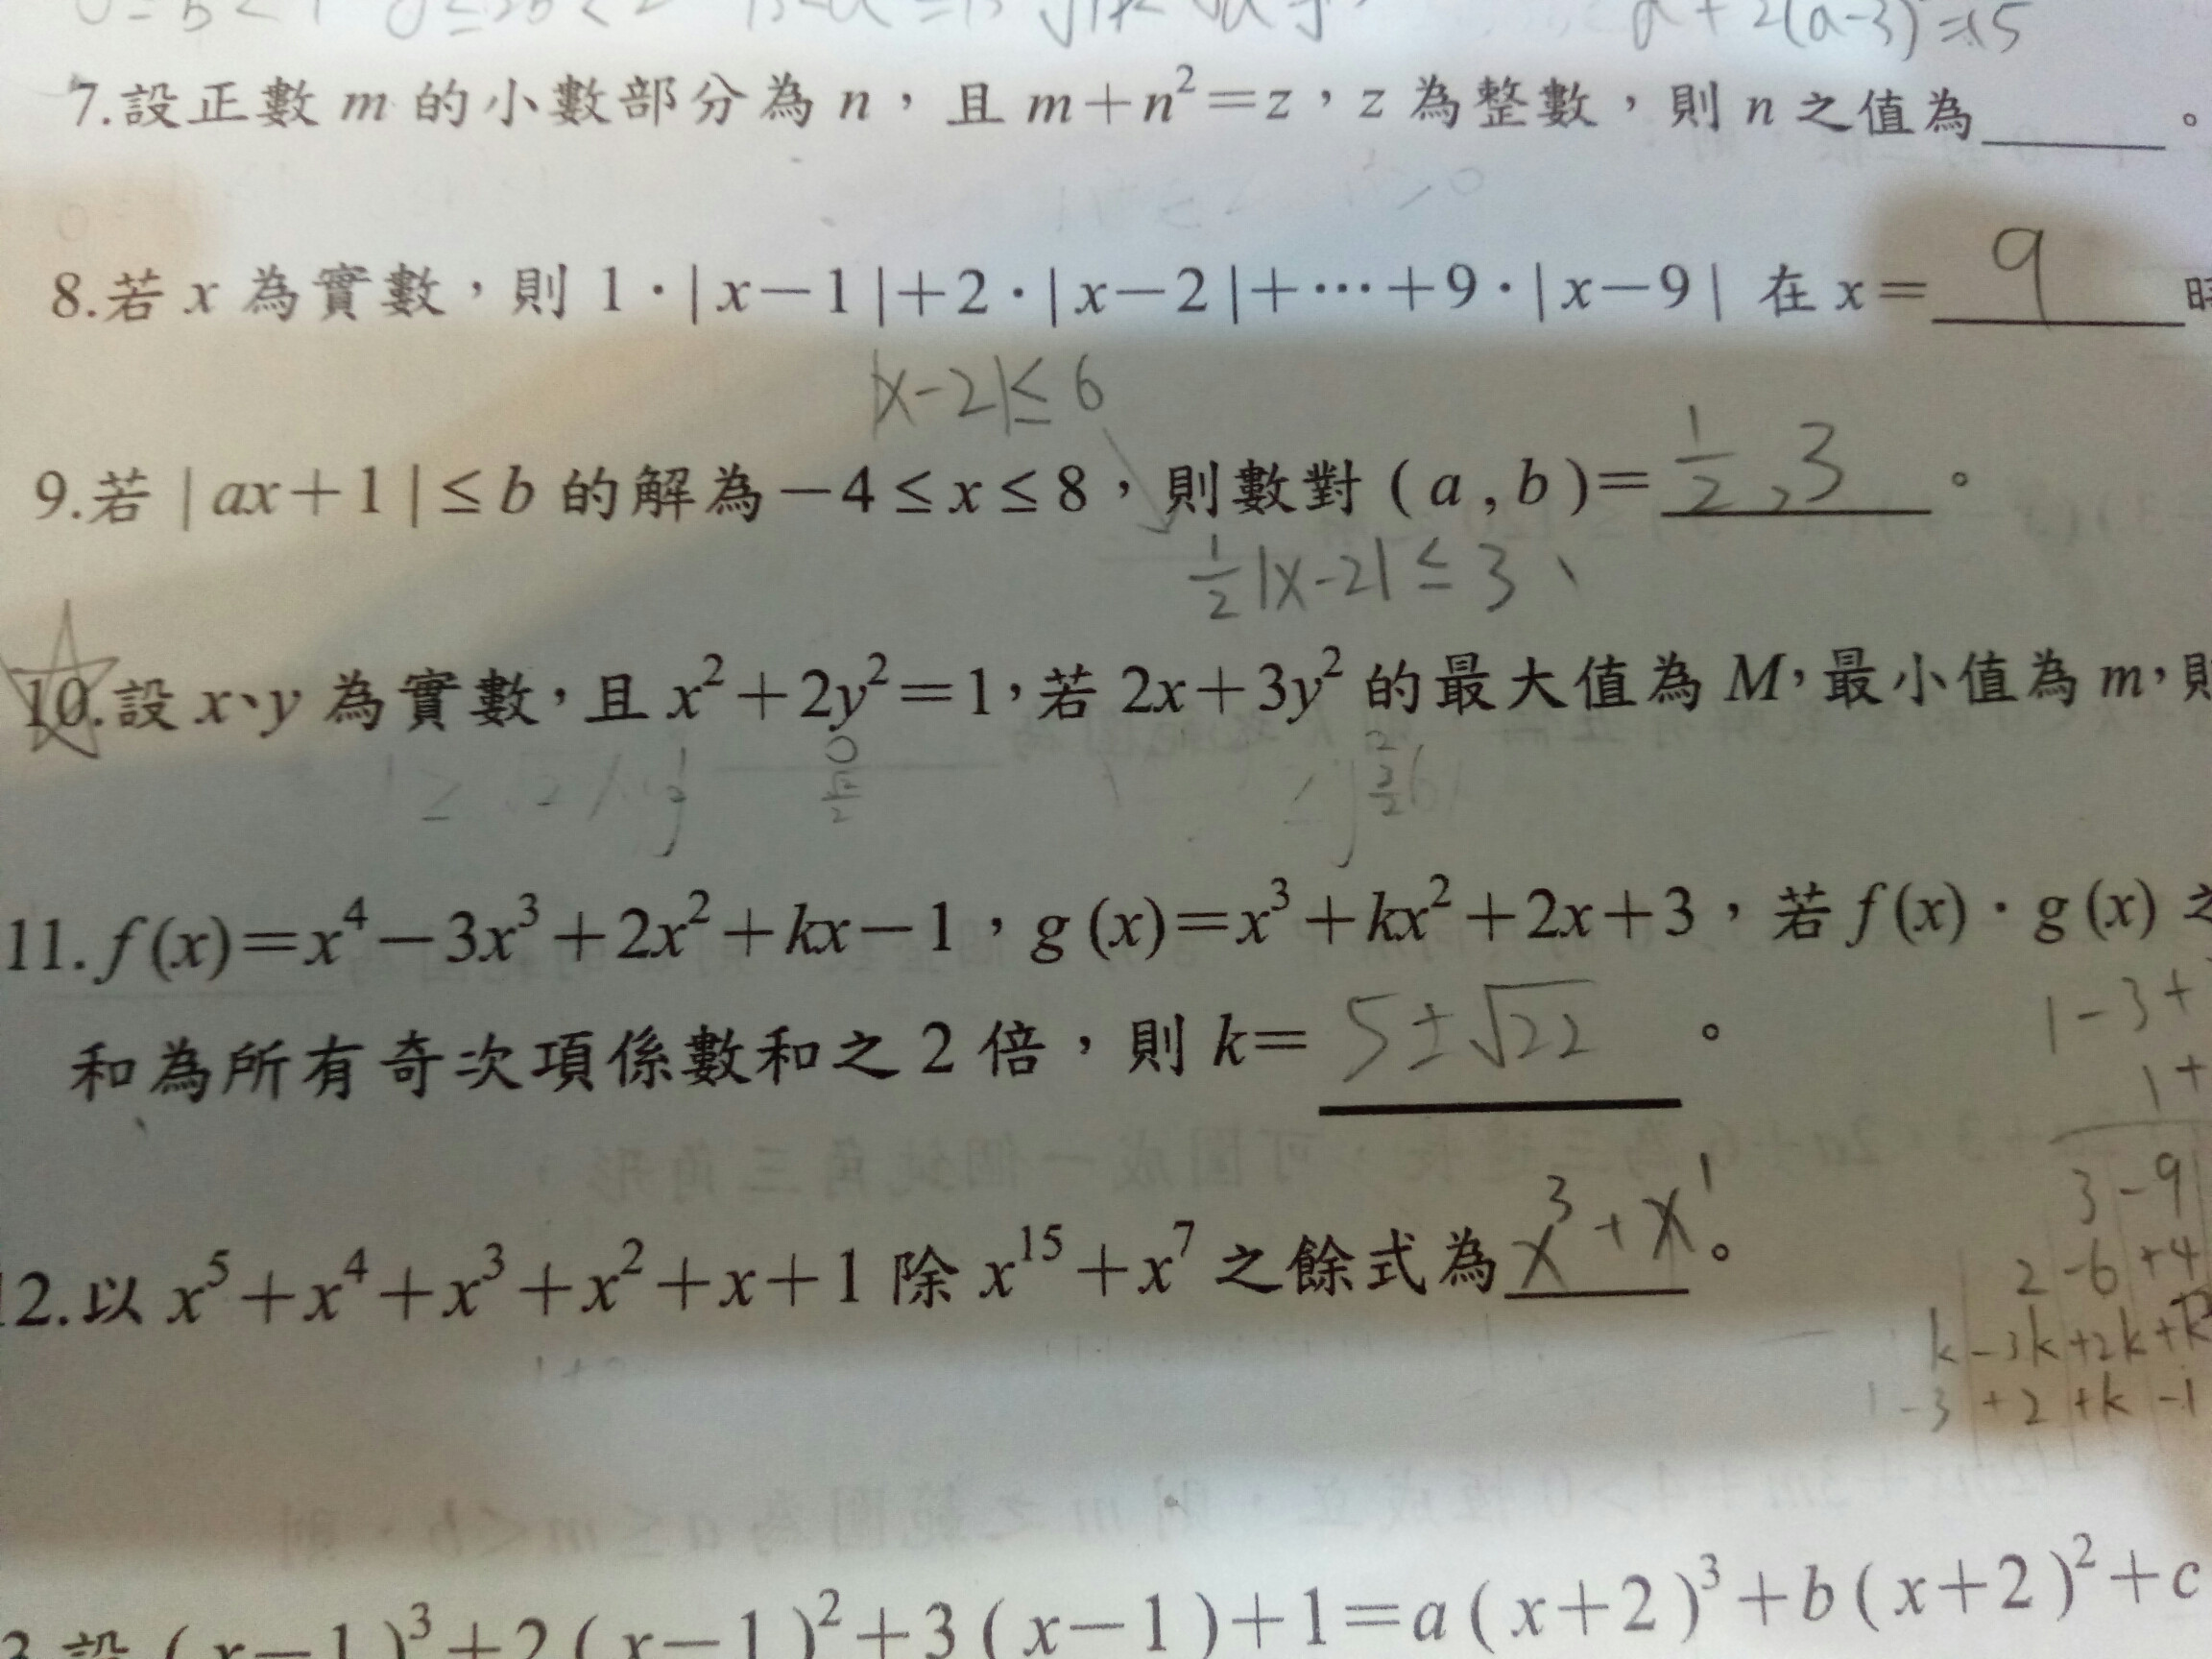 a+2(a-3)=15
7.設正數 m 的小數部分為 n，且 m+n²=z，z 為整數，則 n 之值為______。
8.若 x 為實數，則 1·|x-1|+2·|x-2|+⋯+9·|x-9| 在 x= 9 時
|x-2|≤6
9.若 |ax+1|≤b 的解為 -4≤x≤8，則數對 (a,b)= 1/2,3 。
1/2|x-2|≤3
10.設 x、y 為實數，且 x²+2y²=1，若 2x+3y² 的最大值為 M，最小值為 m，則
11.f(x)=x⁴-3x³+2x²+kx-1，g(x)=x³+kx²+2x+3，若 f(x)·g(x) 之
和為所有奇次項係數和之 2 倍，則 k= 5±√22 。
1-3+
1+
3-9
2-6+4
k-3k+2k+k²
1-3+2+k-1
12.以 x⁵+x⁴+x³+x²+x+1 除 x¹⁵+x⁷ 之餘式為 x³+x¹ 。
3.設 (x-1)³+2(x-1)²+3(x-1)+1=a(x+2)³+b(x+2)²+c